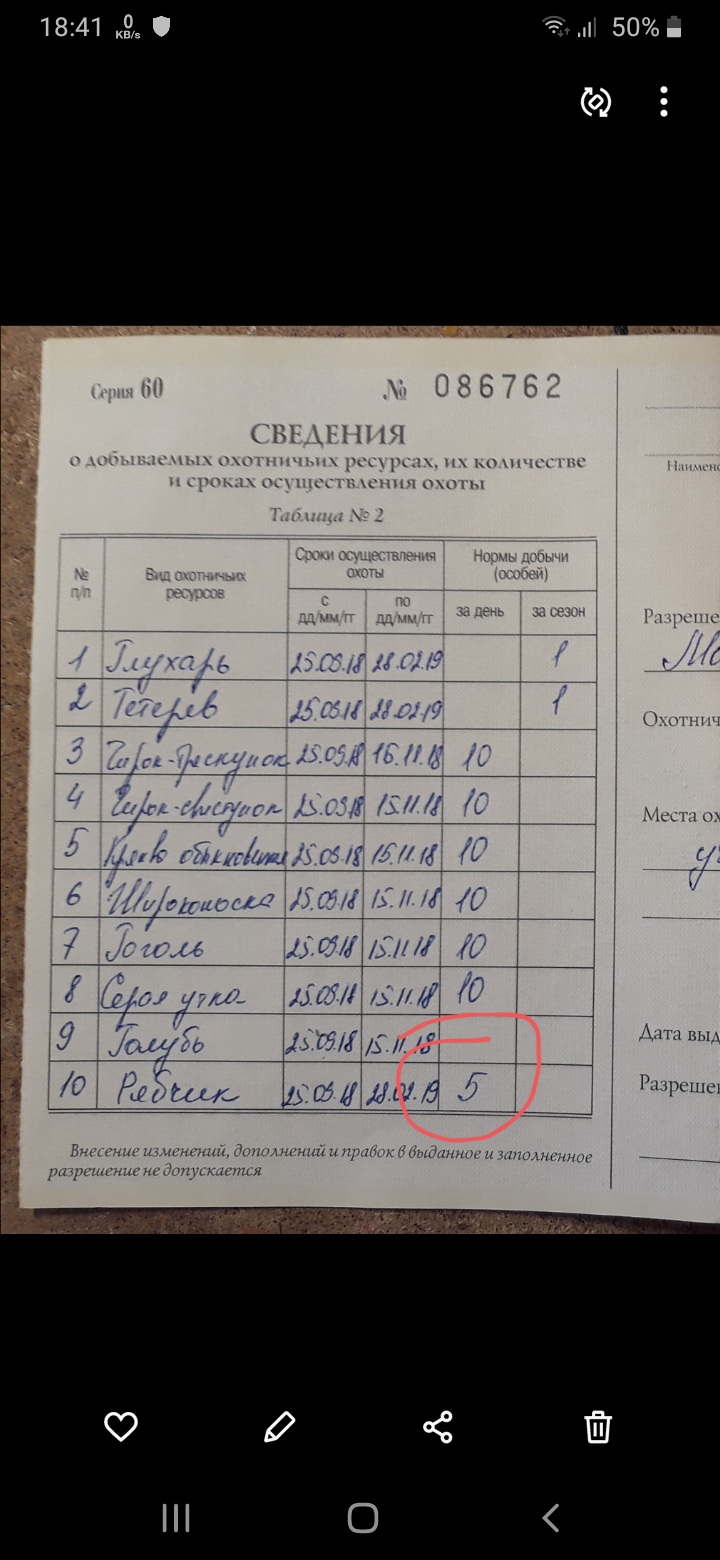 18:41 0 KB/s 50%
Серия 60 № 086762
СВЕДЕНИЯ
о добываемых охотничьих ресурсах, их количестве
и сроках осуществления охоты
Таблица № 2
№ п/п Вид охотничьих ресурсов Сроки осуществления охоты Нормы добычи (особей)
с дд/мм/гг по дд/мм/гг за день за сезон
1 Глухарь 25.09.18 28.02.19 1
2 Тетерев 25.09.18 28.02.19 1
3 Чирок-трескунок 25.09.18 15.11.18 10
4 Чирок-свистунок 25.09.18 15.11.18 10
5 Кряква обыкновенная 25.09.18 15.11.18 10
6 Широконоска 25.09.18 15.11.18 10
7 Гоголь 25.09.18 15.11.18 10
8 Серая утка 25.09.18 15.11.18 10
9 Голубь 25.09.18 15.11.18
10 Рябчик 25.09.18 28.02.19 5
Внесение изменений, дополнений и правок в выданное и заполненное
разрешение не допускается
Наимено
Разреше
Охотнич
Места ох
Дата выд
Разрешен